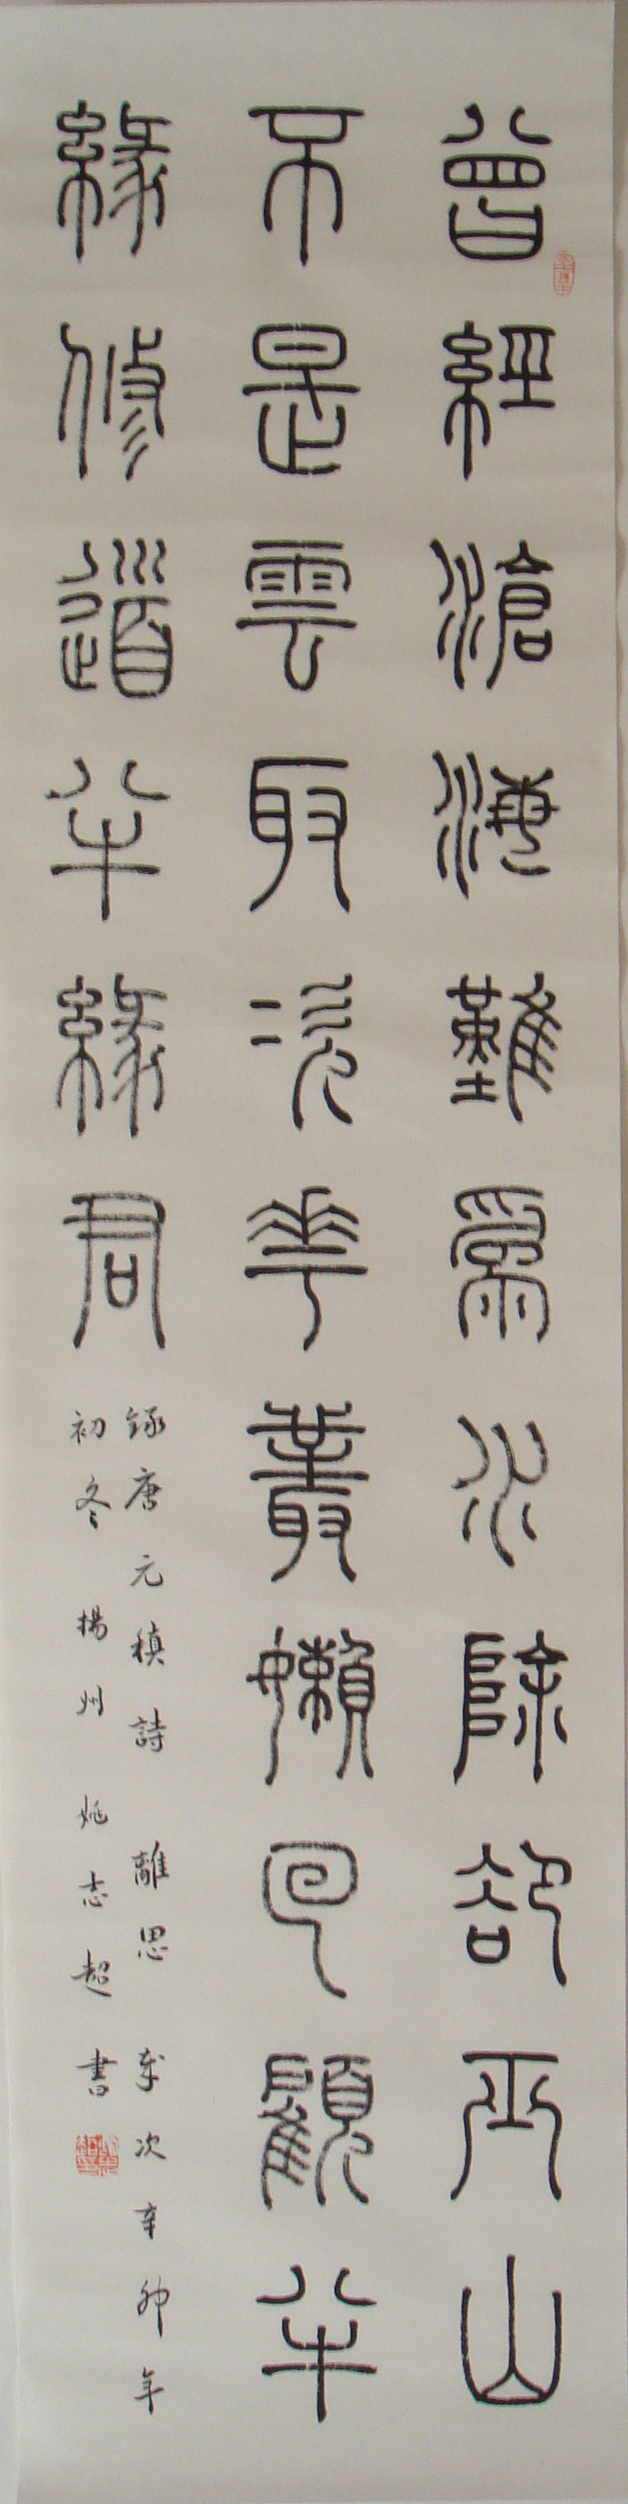 曾經滄海難爲水除卻巫山
不是雲取次花叢懶回顧半
緣修道半緣君
錄唐元稹詩 離思 歲次辛卯年
初冬 揚州 姚志超書